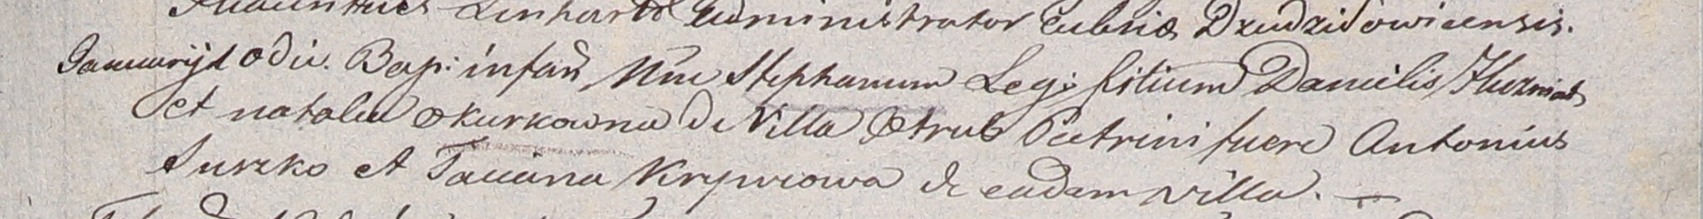 Linhardt Administrator Eccliæ Dzudzisowicensis.
Januarij 1 o die. Bap: infañ Nñe Stephanum Leg: filium Danielis Huzniak
et natalia Okurkowna de Villa Otrub Patrini fuere Antonius
Suszko et Taciana Krywcowa de eadem villa. —